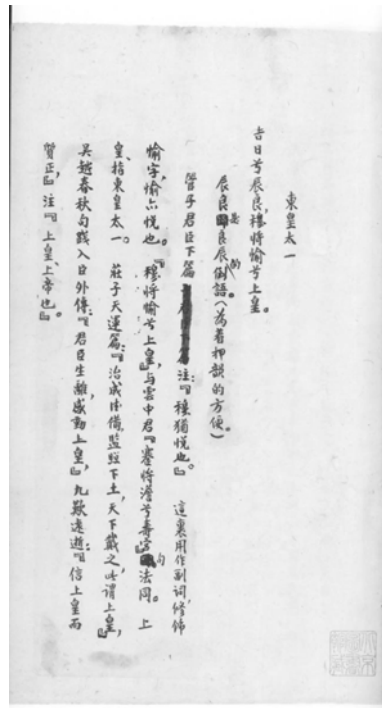 東皇太一
吉日兮辰良,穆將愉兮上皇。
辰良是良辰的倒語(為着押韻的方便。)
管子君臣下篇注:『穆猶悅也。』 這裏用作副詞,修飾
愉字,愉亦悅也。『穆將愉兮上皇』与雲中君『蹇將憺兮壽宮』句法同。 上
皇、指東皇太一。 莊子天運篇:『治成德備,監照下土,天下戴之,此謂上皇』,
吳越春秋句踐入臣外傳:『君臣生離,感動上皇』,九歎遠遊:『信上皇而
質正』,注『上皇、上帝也。』